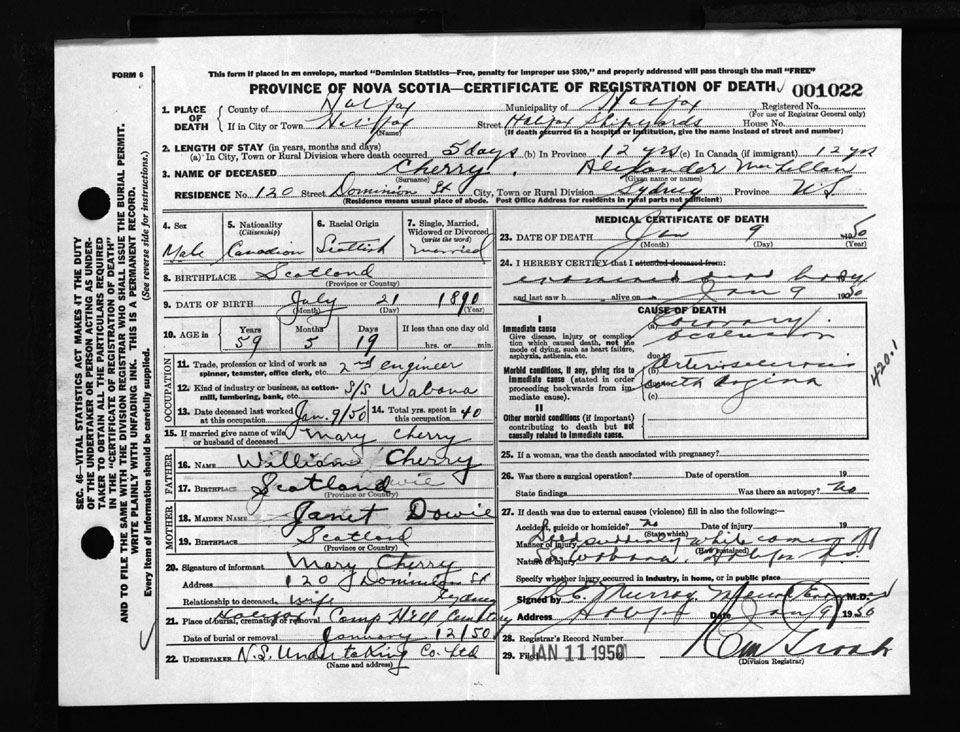 FORM 6
This form if placed in an envelope, marked "Dominion Statistics—Free, penalty for improper use $300," and properly addressed will pass through the mail "FREE"
PROVINCE OF NOVA SCOTIA—CERTIFICATE OF REGISTRATION OF DEATH
001022
1. PLACE OF DEATH
County of Halifax Municipality of Halifax Registered No.
(For use of Registrar General only)
If in City or Town Halifax Street Halifax Shipyards House No.
(Name) (If death occurred in a hospital or institution, give the name instead of street and number)
2. LENGTH OF STAY (in years, months and days)
(a) In City, Town or Rural Division where death occurred 5 days (b) In Province 12 yrs (c) In Canada (if immigrant) 12 yrs
3. NAME OF DECEASED Cherry, Alexander MacLellan
(Surname) (Given name or names)
RESIDENCE No. 120 Street Dominion St City, Town or Rural Division Sydney Province N S
(Residence means usual place of abode. Post Office Address for residents in rural parts not sufficient)
4. Sex Male
5. Nationality (Citizenship) Canadian
6. Racial Origin Scottish
7. Single, Married, Widowed or Divorced (write the word) married
8. BIRTHPLACE Scotland
(Province or Country)
9. DATE OF BIRTH July 21 1890
(Month) (Day) (Year)
10. AGE in Years Months Days If less than one day old
59 5 19 hrs. or min.
OCCUPATION
11. Trade, profession or kind of work as spinner, teamster, office clerk, etc. 2nd engineer
12. Kind of industry or business, as cotton-mill, lumbering, bank, etc. S/S Wabana
13. Date deceased last worked at this occupation Jan. 9/50 14. Total yrs. spent in this occupation 40
15. If married give name of wife or husband of deceased Mary Cherry
FATHER
16. NAME William Cherry
17. BIRTHPLACE Scotland
(Province or Country)
MOTHER
18. MAIDEN NAME Janet Dowie
19. BIRTHPLACE Scotland
(Province or Country)
20. Signature of informant Mary Cherry
Address 120 Dominion St Sydney
Relationship to deceased wife
21. Place of burial, cremation or removal Camp Hill Cemetery
Date of burial or removal January 12/50
22. UNDERTAKER N.S. Undertaking Co. Ltd
(Name and address)
MEDICAL CERTIFICATE OF DEATH
23. DATE OF DEATH Jan 9 1950
(Month) (Day) (Year)
24. I HEREBY CERTIFY that I attended deceased from:
examined dead body
and last saw h alive on Jan 9 1950
CAUSE OF DEATH
I
Immediate cause
Give disease, injury or complication which caused death, not the mode of dying, such as heart failure, asphyxia, asthenia, etc.
(a) Coronary occlusion
due
Morbid conditions, if any, giving rise to immediate cause (stated in order proceeding backwards from immediate cause)
Arteriosclerosis
with Angina
(c)
420.1
II
Other morbid conditions (if important) contributing to death but not causally related to immediate cause.
25. If a woman, was the death associated with pregnancy?
26. Was there a surgical operation? Date of operation 19
State findings Was there an autopsy? No
27. If death was due to external causes (violence) fill in also the following:
Accident, suicide or homicide? no Date of injury 19
(State which)
Manner of injury Died suddenly while coming off
(How sustained)
Nature of injury SS Wabana. Halifax N.S.
Specify whether injury occurred in industry, in home, or in public place
Signed by Murray M.D.
Address Date Jan 9 1950
28. Registrar's Record Number
29. Filed JAN 11 1950
(Division Registrar)
SEC. 46—VITAL STATISTICS ACT MAKES IT THE DUTY
OF THE UNDERTAKER OR PERSON ACTING AS UNDER-
TAKER TO OBTAIN ALL THE PARTICULARS REQUIRED
IN THE "CERTIFICATE OF REGISTRATION OF DEATH"
AND TO FILE THE SAME WITH THE DIVISION REGISTRAR WHO SHALL ISSUE THE BURIAL PERMIT.
WRITE PLAINLY WITH UNFADING INK. THIS IS A PERMANENT RECORD.
Every item of information should be carefully supplied. (See reverse side for instructions.)